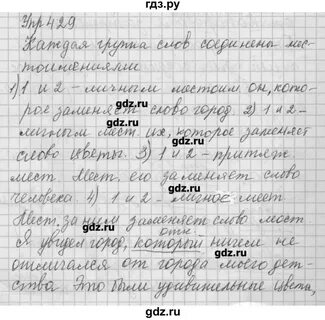 гдз.ру
Упр 429
Каждая группа слов соединены мес-
тоимениями
1) 1 и 2 – личным местоим он, кото-
рое заменяет слово город. 2) 1 и 2 –
личным мест. их, которое заменяет
слово цветы. 3) 1 и 2 – притяж.
мест. Мест. его заменяет слово
человека. 4) 1 и 2 – личное мест
Мест. за ним заменяет слово мост
отн.
Я увидел город, который ничем не
отличался от города моего дет-
ства. Это были удивительные цветы,